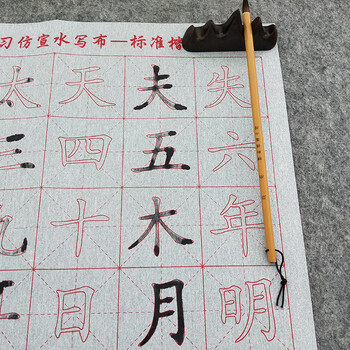 习仿宣水写布—标准楷
太天夫失
三四五六
九十木年
日月明